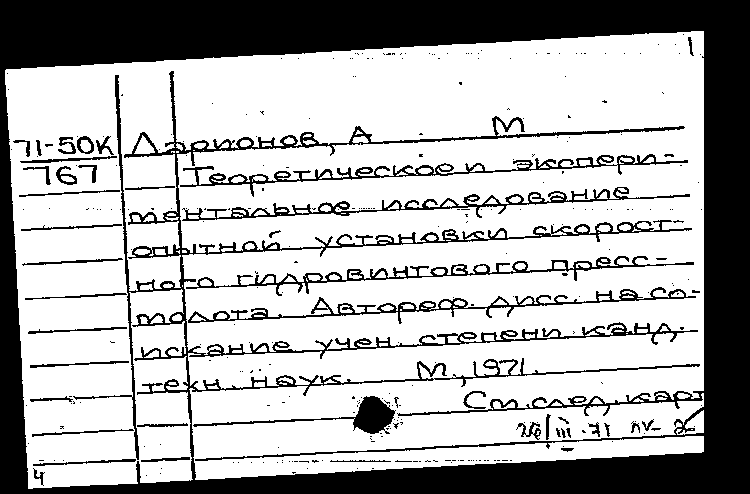 1
71-50К Ларионов, А М
767 Теоретическое и экспери-
ментальное исследование
опытной установки скорост-
ного гидровинтового пресс-
молота. Автореф. дисс. на со-
искание учен. степени канд.
техн. наук. М., 1971.
См. след. карт
26/III-71
4